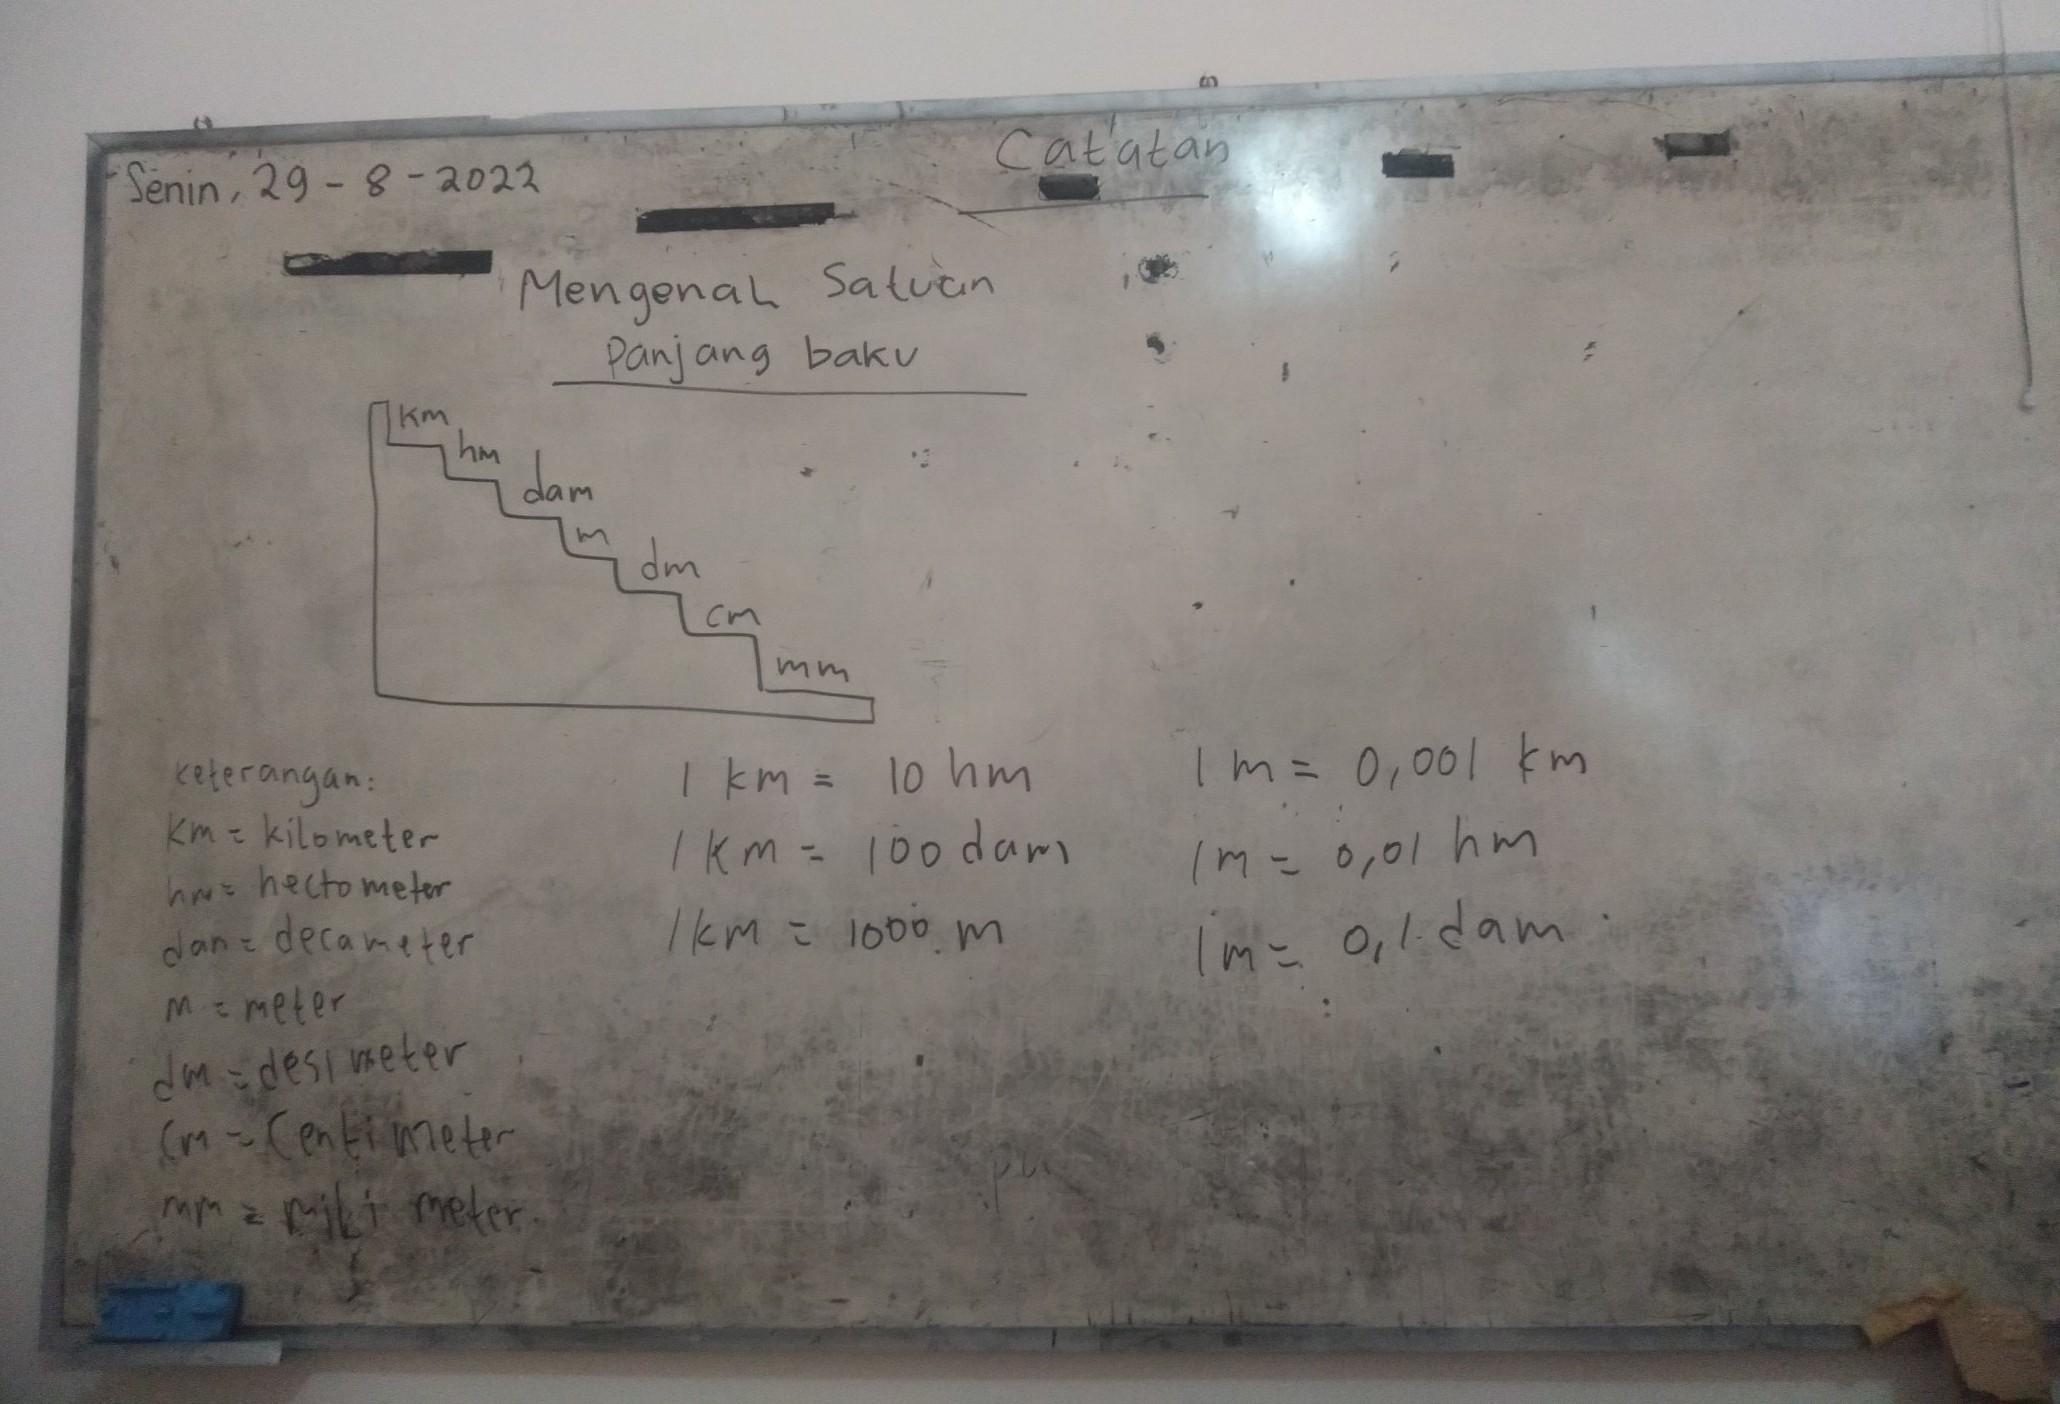 Senin, 29 - 8 - 2022
Catatan
Mengenal Satuan
Panjang baku
km
hm
dam
m
dm
cm
mm
keterangan:
Km = kilometer
hm = hectometer
dan = decameter
m = meter
dm = desimeter
Cm = Centimeter
mm = mili meter.
1 km = 10 hm
1 km = 100 dam
1 km = 1000 m
1 m = 0,001 km
1 m = 0,01 hm
1 m = 0,1 dam